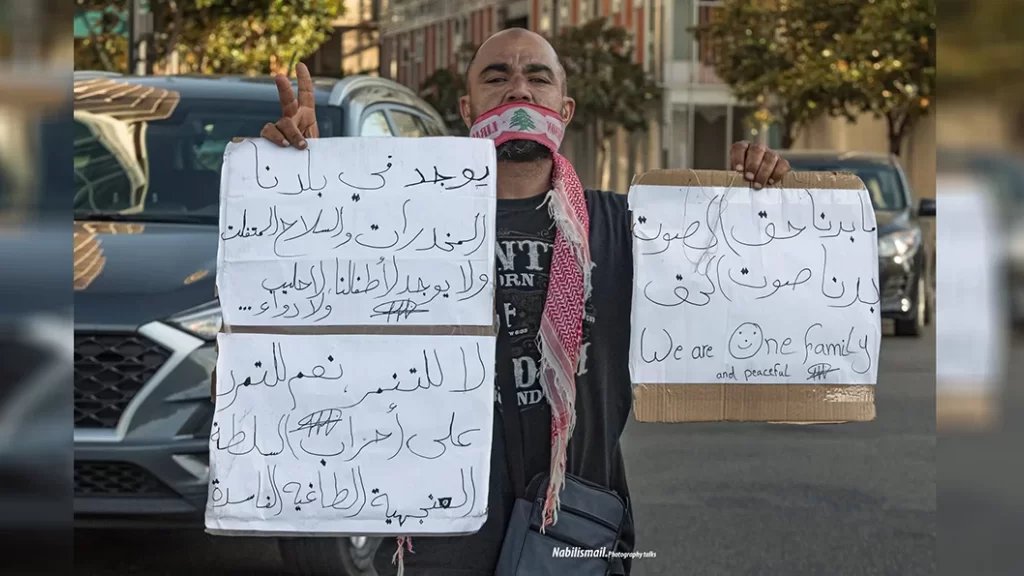 يوجد في بلدنا
المخدرات والسلاح المتفلت
ولا يوجد لأطفالنا، لا حليب
ولا دواء...
لا للتنمر، نعم للتمرد
على (أحزاب) السلطة
العنجهية الطاغية الفاسدة
ما بدنا (حق) الصوت
بدنا صوت (الحق)
We are One family
and peaceful
Nabilismail.Photography talks